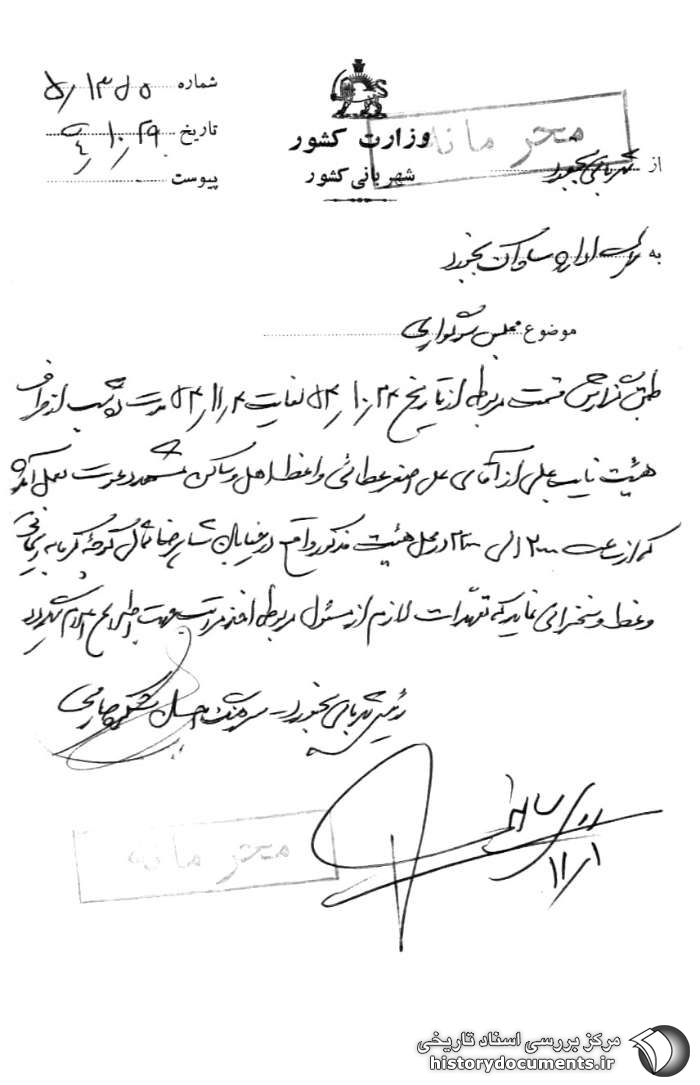 شماره ۵/۱۳۸۵
تاریخ ۵۴/۱۰/۲۹
پیوست
وزارت کشور
شهربانی کشور
محرمانه
از شهربانی بجنورد
به ریاست اداره ساواک بجنورد
موضوع مجلس سوگواری
طبق گزارش قسمت مربوطه از تاریخ ۵۴/۱۰/۲۴ لغایت ۵۴/۱۱/۴ مدت شب از طرف
هیئت از آقای علی اصغر عطائی واعظ اهل و ساکن مشهد دعوت بعمل آمده
که از ساعت ۲۰۰۰ الی در محل هیئت مذکور واقع در خیابان شاپور رضا کوچه گرمابه
وعظ و سخنرانی نماید که تعهدات لازم از مسئول مربوطه اخذ مراتب جهت اطلاع اعلام میگردد
رئیس شهربانی بجنورد -
۱۱/۱
محرمانه
مرکز بررسی اسناد تاریخی
historydocuments.ir